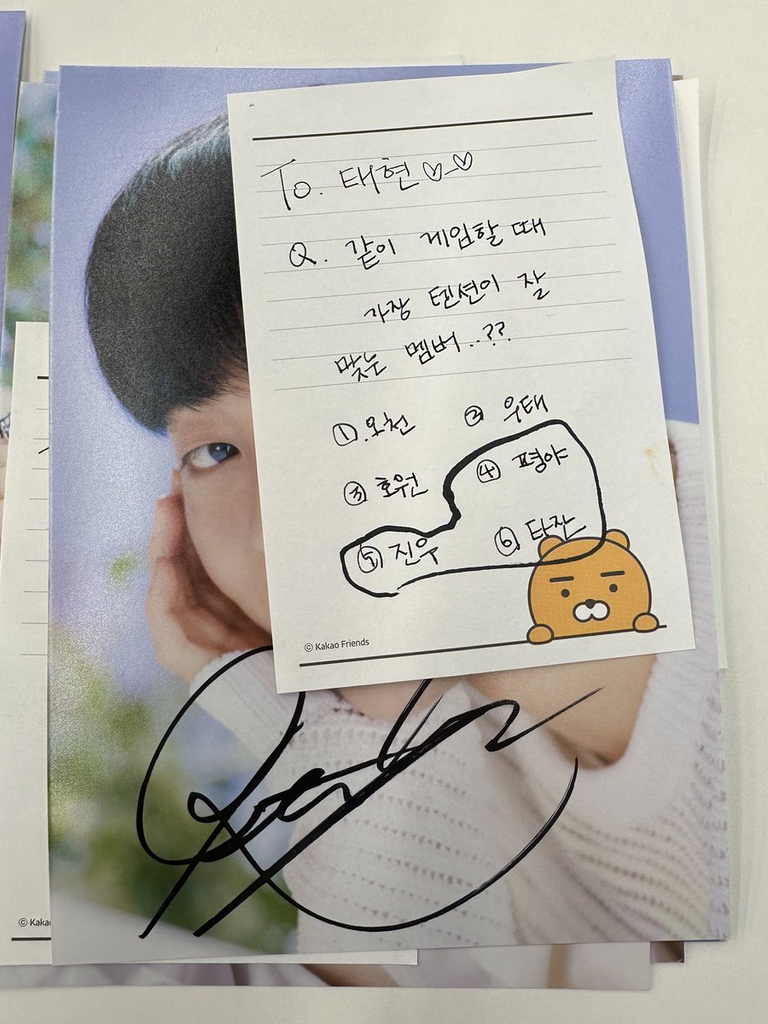 To. 태현♡-♡
Q. 같이 게임할 때
가장 텐션이 잘
맞는 멤버..??
① 오천 ② 우태
③ 호원 ④ 평야
⑤ 진우 ⑥ 타잔
© Kakao Friends
© Kaka